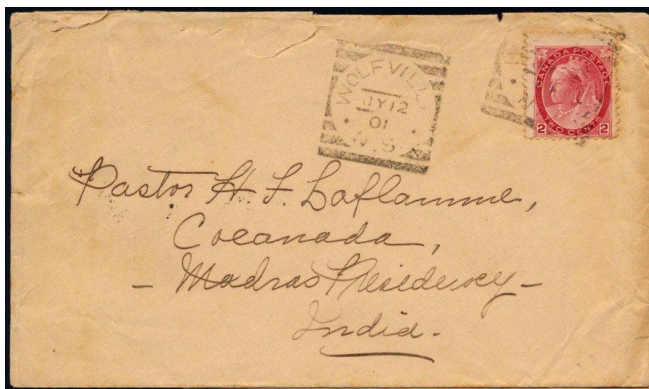 WOLFVILL
JY 12
01
N.S
CANADA POSTAGE
2 TWO CENTS 2
Pastor H. F. Laflamme,
Cocanada,
- Madras Presidency -
India.